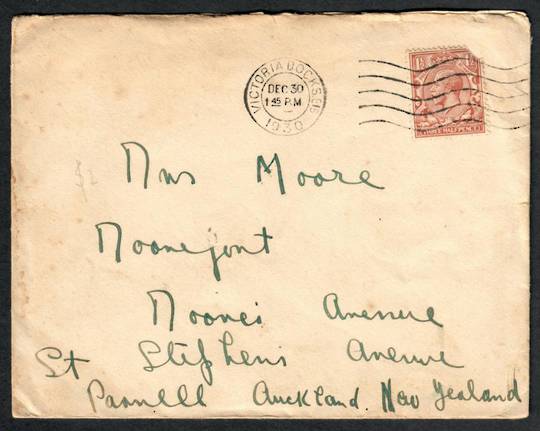 VICTORIA DOCKS. E16
DEC 30
1 45 PM
1930
1½ 1½
THREE HALFPENCE
Mrs Moore
Avenue
St Stephens Avenue
Parnell Auckland. New Zealand